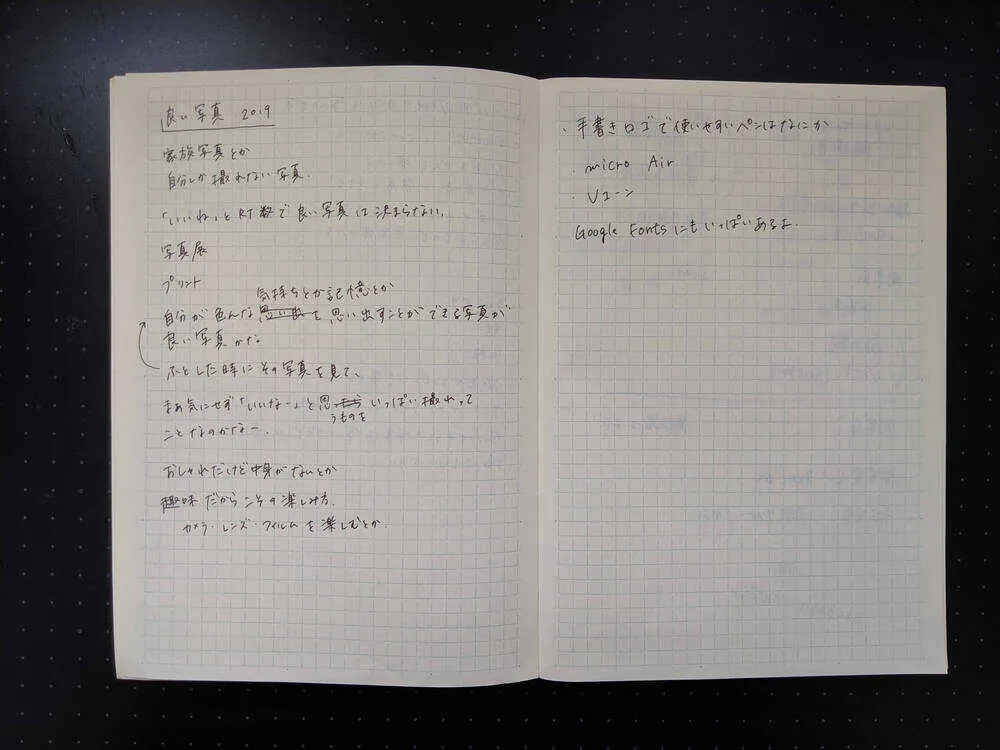 良い写真 2019
家族写真とか
自分しか撮れない写真.
「いいね」とRT数で良い写真は決まらない.
写真展
プリント
気持ちとか記憶とか
自分が色んな思い出を思い出すことができる写真が
良い写真かな
ふとした時にその写真を見て、
まあ気にせず「いいなー」と思ったら いっぱい撮れって
うものを
ことなのかなー.
おしゃれだけど中身がないとか
趣味だからこその楽しみ方.
カメラ・レンズ・フィルムを楽しむとか.
・手書きロゴで使いやすいペンはなにか
・micro Air
・Vコーン
Google Fontsにもいっぱいあるよ.